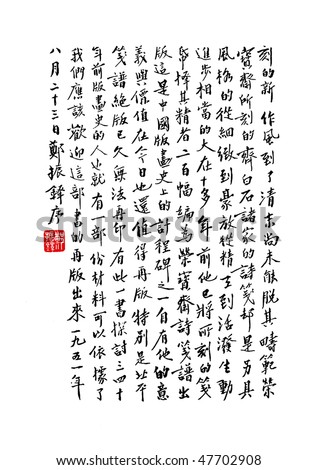 刻的新作風到了清末尚未能脫其疇範榮
寶齋所刻的齊白石諸家的詩箋却是另具
風格的從細緻到豪放從精工到活潑生動
進步相當的大在十多年前他已將所刻的箋
帋擇其精者二百幅編為榮寶齋詩箋譜出
版這是中國版畫史上的里程碑之一自有他的意
義與價值在今日也還值得再版特別是北平
箋譜絕版已久無法再印有此一書探討三四十
年前版畫史的人也就有一部份材料可以依據了
我們應該歡迎這部書的再版出來一九五一年
八月二十三日鄭振鐸序
shutterstock
www.shutterstock.com · 47702908